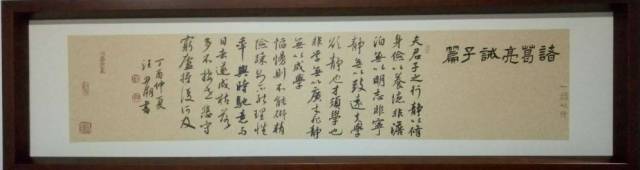 諸葛亮誡子篇
夫君子之行靜以修
身儉以養德非澹
泊無以明志非寧
靜無以致遠夫學
欲靜也才須學也
非學無以廣才非靜
無以成學
慆慢則不能研精
險躁則不能理性
年與時馳意與
日去遂成枯落
多不接世悲守
窮廬將復何及
丁酉仲夏
書